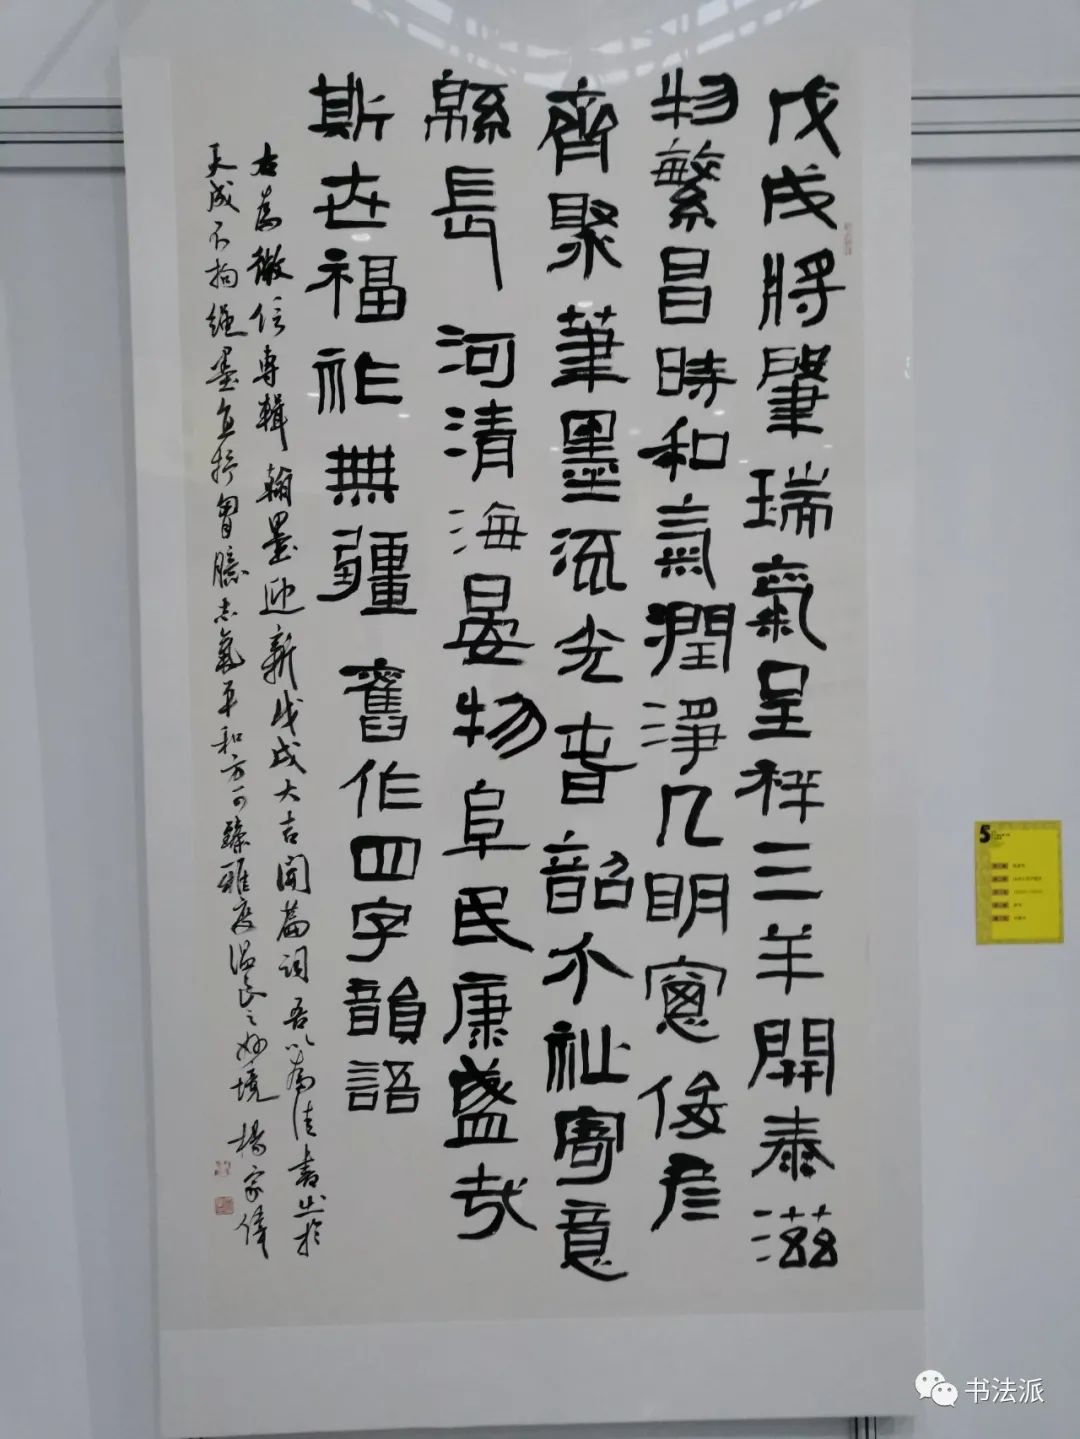 戊戌將肇瑞氣呈祥三羊開泰滋
物繁昌時和氣潤淨几明窻倭彥
齊聚筆墨流光耆韶介祉寄意
緜長河清海晏物阜民康盛哉
斯世福祚無疆舊作四字韻語
右為微信專輯翰墨迎新戊戌大吉開篇詞吾以為佳書出於
天成不拘繩墨直抒胷臆志氣平和方可臻雅度溫良之妙境楊家偉
5
书法派